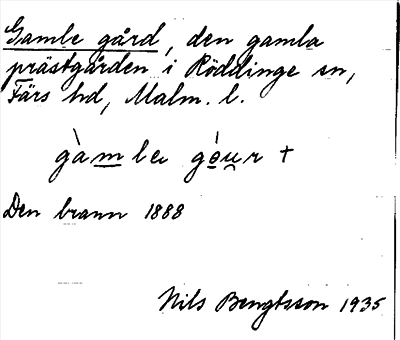 Gamle gård, den gamla
prästgården i Röddinge sn,
Färs hd, Malm. l.
gàmle góur +
Den brann 1888
Nils Bengtsson 1935